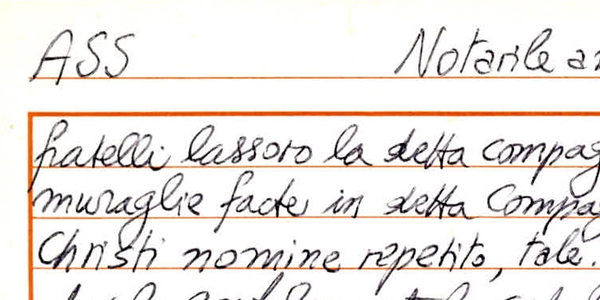 ASS Notarile
fratelli lassoro la detta compag
muraglie facte in detta Compag
Christi nomine repetito, tale.